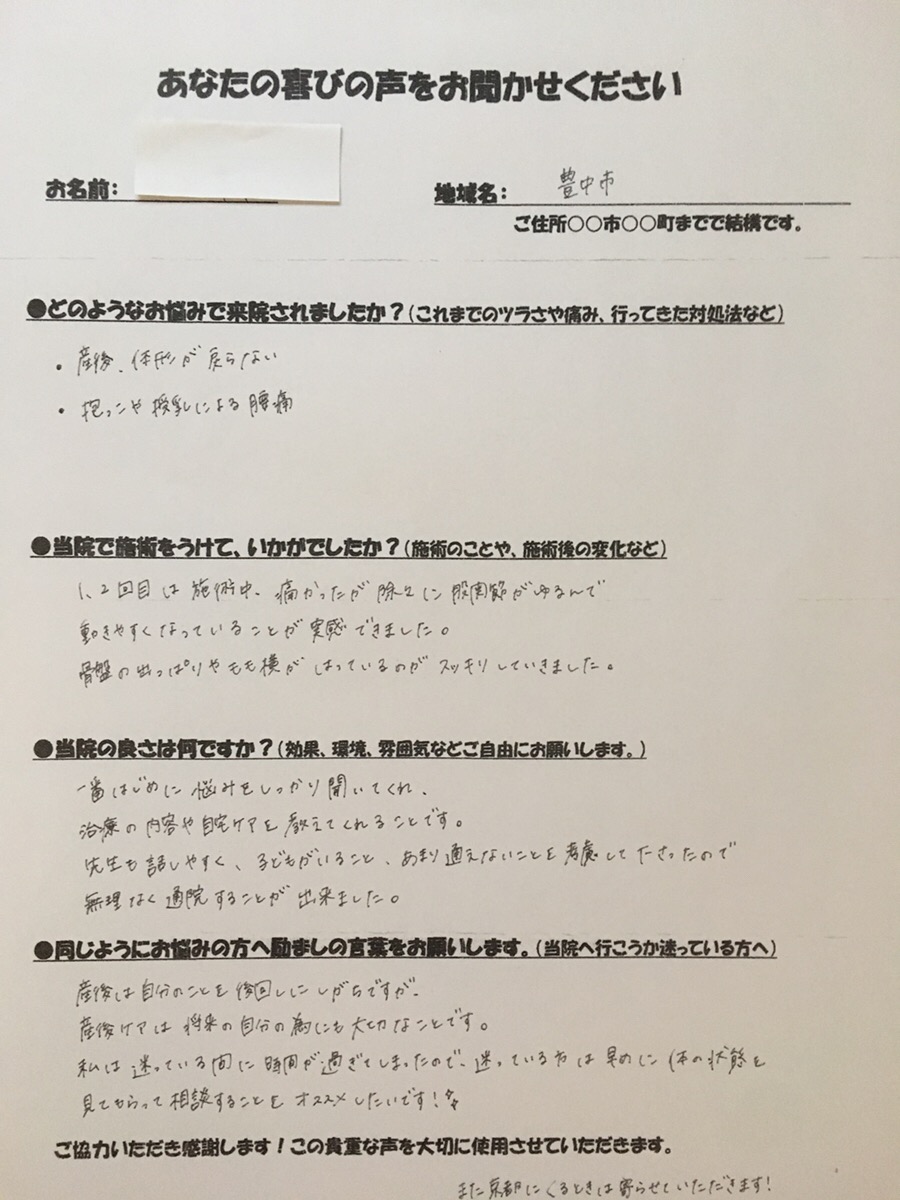 あなたの喜びの声をお聞かせください
お名前:
地域名: 豊中市
ご住所○○市○○町までで結構です。
●どのようなお悩みで来院されましたか?(これまでのツラさや痛み、行ってきた対処法など)
・産後、体形が戻らない
・抱っこや授乳による腰痛
●当院で施術をうけて、いかがでしたか?(施術のことや、施術後の変化など)
1、2回目は施術中、痛かったが除々に股関節がゆるんで
動きやすくなっていることが実感できました。
骨盤の出っぱりやもも横がはっているのがスッキリしていきました。
●当院の良さは何ですか?(効果、環境、雰囲気などご自由にお願いします。)
一番はじめに悩みをしっかり聞いてくれ、
治療の内容や自宅ケアを教えてくれることです。
先生も話しやすく、子どもがいること、あまり通えないことを考慮して下さったので
無理なく通院することが出来ました。
●同じようにお悩みの方へ励ましの言葉をお願いします。(当院へ行こうか迷っている方へ)
産後は自分のことを後回しにしがちですが、
産後ケアは将来の自分の為にも大切なことです。
私は迷っている間に時間が過ぎてしまったので、迷っている方は早めに体の状態を
見てもらって相談することをオススメしたいです!
ご協力いただき感謝します!この貴重な声を大切に使用させていただきます。
また京都にくるときは寄らせていただきます!